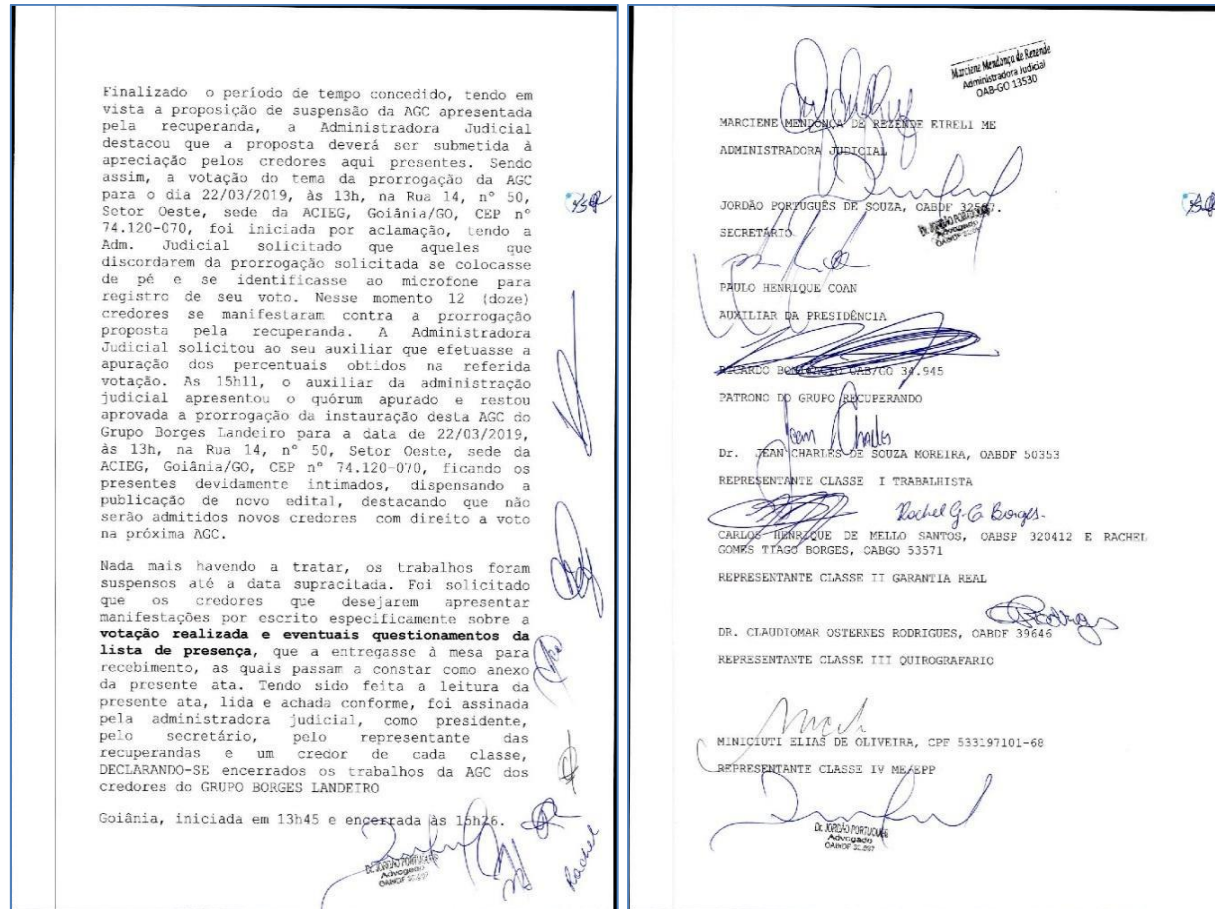 Finalizado o período de tempo concedido, tendo em
vista a proposição de suspensão da AGC apresentada
pela recuperanda, a Administradora Judicial
destacou que a proposta deverá ser submetida à
apreciação pelos credores aqui presentes. Sendo
assim, a votação do tema da prorrogação da AGC
para o dia 22/03/2019, às 13h, na Rua 14, nº 50,
Setor Oeste, sede da ACIEG, Goiânia/GO, CEP nº
74.120-070, foi iniciada por aclamação, tendo a
Adm. Judicial solicitado que aqueles que
discordarem da prorrogação solicitada se colocasse
de pé e se identificasse ao microfone para
registro de seu voto. Nesse momento 12 (doze)
credores se manifestaram contra a prorrogação
proposta pela recuperanda. A Administradora
Judicial solicitou ao seu auxiliar que efetuasse a
apuração dos percentuais obtidos na referida
votação. As 15h11, o auxiliar da administração
judicial apresentou o quórum apurado e restou
aprovada a prorrogação da instauração desta AGC do
Grupo Borges Landeiro para a data de 22/03/2019,
às 13h, na Rua 14, nº 50, Setor Oeste, sede da
ACIEG, Goiânia/GO, CEP nº 74.120-070, ficando os
presentes devidamente intimados, dispensando a
publicação de novo edital, destacando que não
serão admitidos novos credores com direito a voto
na próxima AGC.
Nada mais havendo a tratar, os trabalhos foram
suspensos até a data supracitada. Foi solicitado
que os credores que desejarem apresentar
manifestações por escrito especificamente sobre a
votação realizada e eventuais questionamentos da
lista de presença, que a entregasse à mesa para
recebimento, as quais passam a constar como anexo
da presente ata. Tendo sido feita a leitura da
presente ata, lida e achada conforme, foi assinada
pela administradora judicial, como presidente,
pelo secretário, pelo representante das
recuperandas e um credor de cada classe,
DECLARANDO-SE encerrados os trabalhos da AGC dos
credores do GRUPO BORGES LANDEIRO
Goiânia, iniciada em 13h45 e encerrada às 15h26.
Dr. JORDÃO PORTUGUÊS
Advogado
Rachel
Marciene Mendonça de Rezende
Administradora Judicial
OAB-GO 13530
MARCIENE MENDONÇA DE REZENDE EIRELI ME
ADMINISTRADORA JUDICIAL
JORDÃO PORTUGUÊS DE SOUZA, OABDF
Dr. JORDÃO PORTUGUÊS
Advogado
SECRETÁRIO
PAULO HENRIQUE COAN
AUXILIAR DA PRESIDÊNCIA
RICARDO OAB/GO 34.945
PATRONO DO GRUPO RECUPERANDO
Jean Charles
Dr. JEAN CHARLES DE SOUZA MOREIRA, OABDF 50353
REPRESENTANTE CLASSE I TRABALHISTA
Rachel G. G. Borges.
CARLOS HENRIQUE DE MELLO SANTOS, OABSP 320412 E RACHEL
GOMES TIAGO BORGES, OABGO 53571
REPRESENTANTE CLASSE II GARANTIA REAL
DR. CLAUDIOMAR OSTERNES RODRIGUES, OABDF 39646
REPRESENTANTE CLASSE III QUIROGRAFARIO
MINICIUTI ELIAS DE OLIVEIRA, CPF 533197101-68
REPRESENTANTE CLASSE IV ME/EPP
Dr. JORDÃO PORTUGUÊS
Advogado